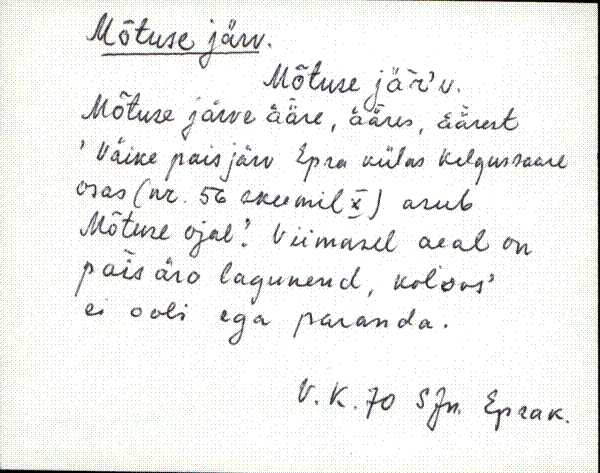 Mõtuse järv.
Mõtuse jär'v.
Mõtuse järve ääre, ääres, äärest
'Väike paisjärv Epra külas Kelgussaare
osas (nr. 56 skeemil X) asub
Mõtuse ojal'. Viimasel aeal on
pais ära lagunend, kol'oos'
ei ooli ega paranda.
V. K. 70 SJn. Eprak.